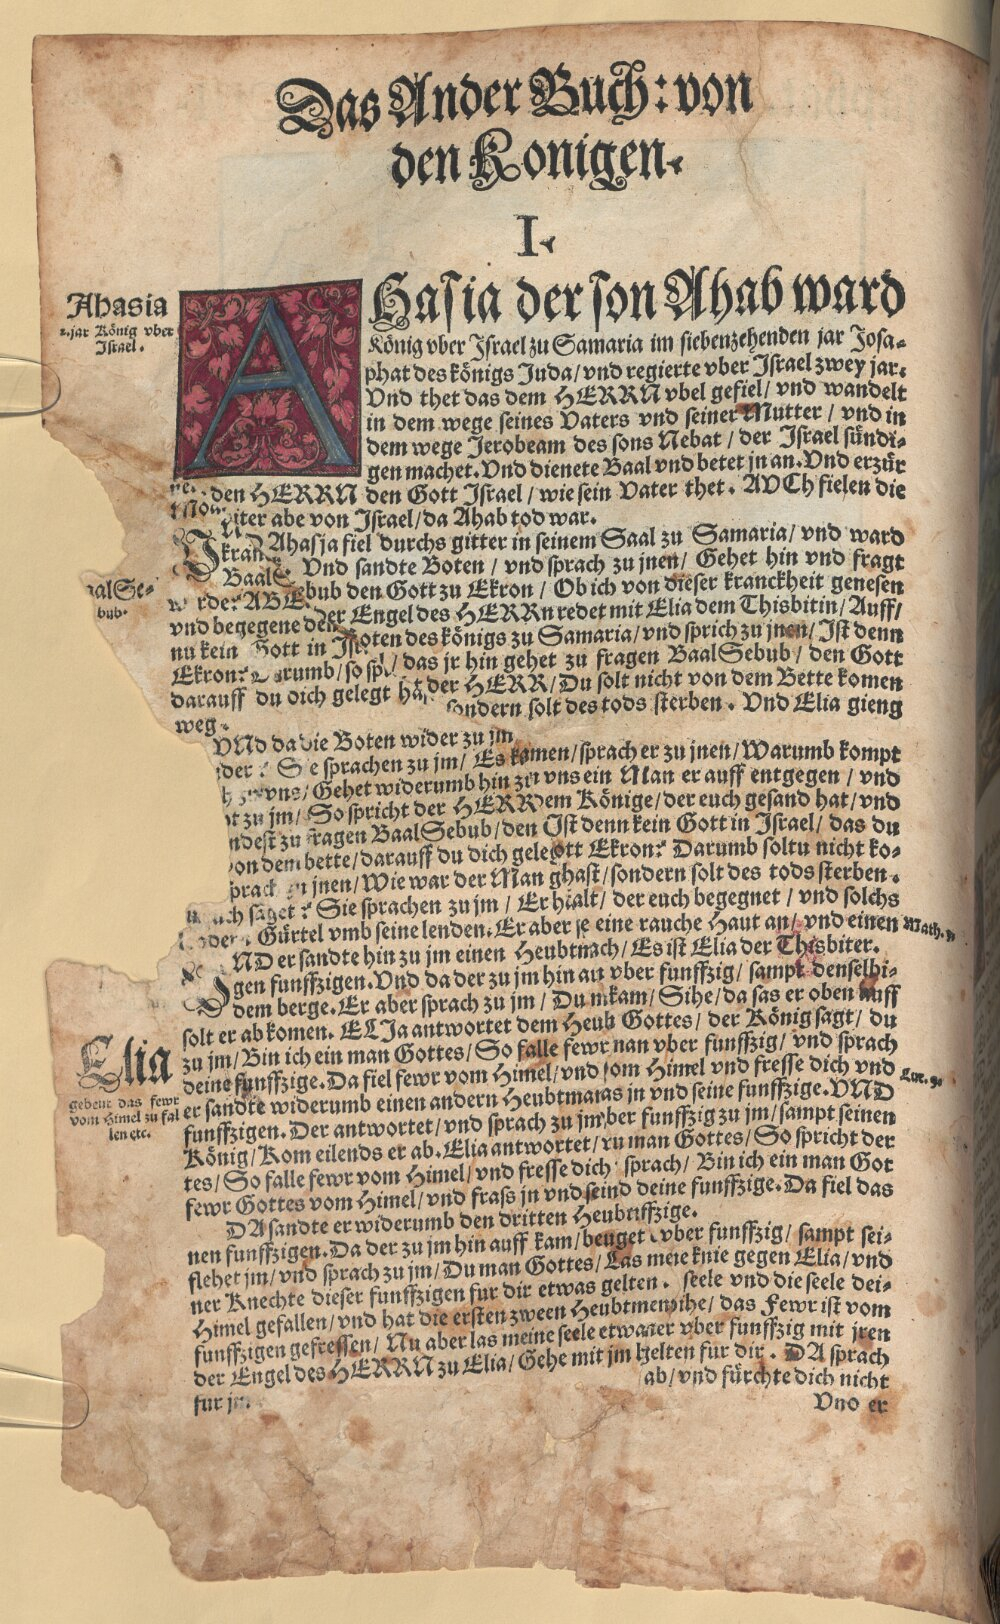 Das Ander Buch: von
den Konigen.
I.
Ahasia
2. jar König vber
Israel.
AHasia der son Ahab ward
König vber Israel zu Samaria im siebenzehenden jar Josa-
phat des königs Juda/ vnd regierte vber Israel zwey jar.
Vnd thet das dem HERRN vbel gefiel/ vnd wandelt
in dem wege seines Vaters vnd seiner Mutter/ vnd in
dem wege Jerobeam des sons Nebat/ der Israel sündi-
gen machet. Vnd dienete Baal vnd betet jn an. Vnd erzür
den HERRN den Gott Israel/ wie sein Vater thet. AVCh fielen die
iter abe von Israel/ da Ahab tod war.
VND Ahasja fiel durchs gitter in seinem Saal zu Samaria/ vnd ward
kranck. Vnd sandte Boten/ vnd sprach zu jnen/ Gehet hin vnd fragt
BaalSebub den Gott zu Ekron/ Ob ich von dieser kranckheit genesen
alSe-
bub.
werde? ABER der Engel des HERRn redet mit Elia dem Thisbitin/ Auff/
vnd begegene den Boten des königs zu Samaria/ vnd sprich zu jnen/ Ist denn
nu kein Gott in Israel/ das jr hin gehet zu fragen BaalSebub/ den Gott
Ekron? Darumb/ so spricht der HERR/ Du solt nicht von dem Bette komen
darauff du dich gelegt hast/ sondern solt des tods sterben. Vnd Elia gieng
weg.
VNd da die Boten wider zu jm kamen/ sprach er zu jnen/ Warumb kompt
der? Sie sprachen zu jm/ Es kam vns ein Man er auff entgegen/ vnd
vns/ Gehet widerumb hin zu dem Könige/ der euch gesand hat/ vnd
zu jm/ So spricht der HERR/ Ist denn kein Gott in Israel/ das du
ndest zu fragen BaalSebub/ den Gott Ekron? Darumb soltu nicht ko-
von dem bette/ darauff du dich gelegt hast/ sondern solt des tods sterben.
sprach zu jnen/ Wie war der Man gestalt/ der euch begegnet/ vnd solchs
euch saget? Sie sprachen zu jm/ Er hatte eine rauche Haut an/ vnd einen
Math.
leddern Gürtel vmb seine lenden. Er aber sprach/ Es ist Elia der Thisbiter.
VND er sandte hin zu jm einen Heubtman vber funffzig/ sampt denselbi-
gen funffzigen. Vnd da der zu jm hin auff kam/ Sihe/ da sas er oben auff
dem berge. Er aber sprach zu jm/ Du man Gottes/ der König sagt/ du
solt er ab komen. ELJa antwortet dem Heubtman vber funffzig/ vnd sprach
Elia
gebeut das fewr
vom Himel zu fal
len etc.
zu jm/ Bin ich ein man Gottes/ So falle fewr vom Himel vnd fresse dich vnd
Luc. 9.
deine funffzige. Da fiel fewr vom Himel/ vnd fras jn vnd seine funffzige. VND
er sandte widerumb einen andern Heubtman vber funffzig zu jm/ sampt seinen
funffzigen. Der antwortet/ vnd sprach zu jm/ Du man Gottes/ So spricht der
König/ Kom eilends er ab. Elia antwortet/ vnd sprach/ Bin ich ein man Got
tes/ So falle fewr vom Himel/ vnd fresse dich vnd deine funffzige. Da fiel das
fewr Gottes vom Himel/ vnd frass jn vnd seine funffzige.
DA sandte er widerumb den dritten Heubtman vber funffzig/ sampt sei-
nen funffzigen. Da der zu jm hin auff kam/ beuget er seine knie gegen Elia/ vnd
flehet jm/ vnd sprach zu jm/ Du man Gottes/ Las meine seele vnd die seele dei-
ner Knechte dieser funffzigen fur dir etwas gelten. Sihe/ das Fewr ist vom
Himel gefallen/ vnd hat die ersten zween Heubtmenner vber funffzig mit jren
funffzigen gefressen/ Nu aber las meine seele etwas gelten fur dir. DA sprach
der Engel des HERRN zu Elia/ Gehe mit jm hin ab/ vnd fürchte dich nicht
fur jm.
Vnd er